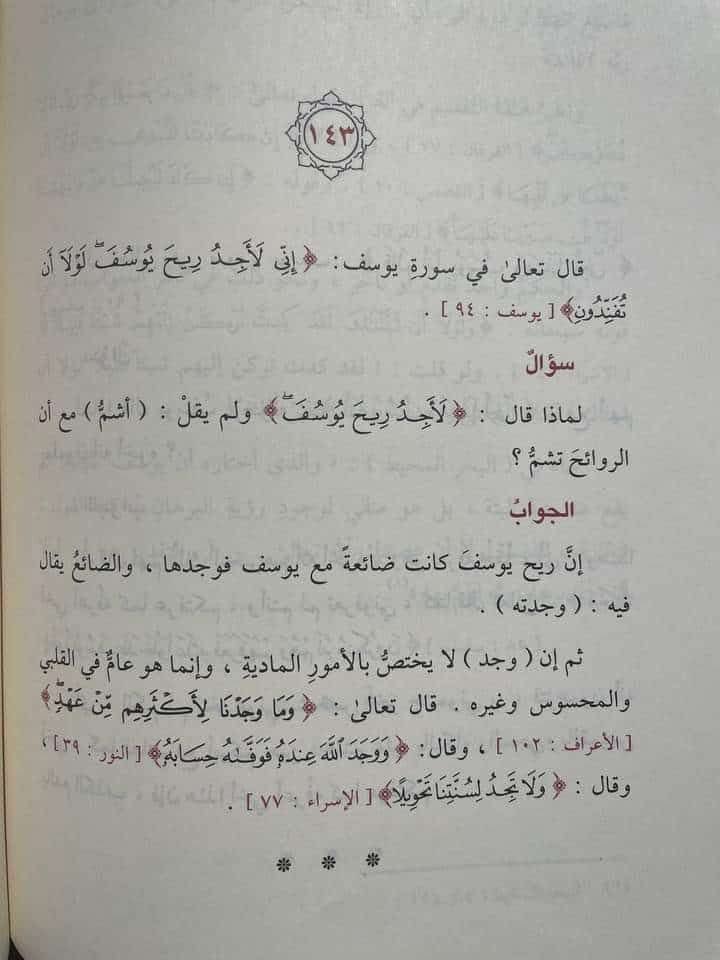 ١٤٣
قال تعالىٰ في سورةِ يوسف: ﴿ إِنِّي لَأَجِدُ رِيحَ يُوسُفَۖ لَوْلَآ أَن
تُفَنِّدُونِ﴾ [ يوسف : ٩٤ ] .
سؤالٌ
لماذا قال : ﴿ لَأَجِدُ رِيحَ يُوسُفَۖ ﴾ ولم يقلْ : ( أشمُّ ) مع أن
الروائحَ تشمُّ ؟
الجوابُ
إنَّ ريح يوسفَ كانت ضائعةً مع يوسف فوجدها ، والضائعُ يقال
فيه : ( وجدته ) .
ثم إن ( وجد ) لا يختصُّ بالأمورِ الماديةِ ، وإنما هو عامٌّ في القلبي
والمحسوس وغيره . قال تعالىٰ : ﴿ وَمَا وَجَدْنَا لِأَكْثَرِهِم مِّنْ عَهْدٍۖ ﴾
[ الأعراف : ١٠٢ ] ، وقال: ﴿ وَوَجَدَ ٱللَّهَ عِندَهُۥ فَوَفَّىٰهُ حِسَابَهُۥ﴾ [ النور : ٣٩ ] ،
وقال : ﴿ وَلَا تَجِدُ لِسُنَّتِنَا تَحْوِيلًا﴾ [ الإسراء : ٧٧ ] .
* * *